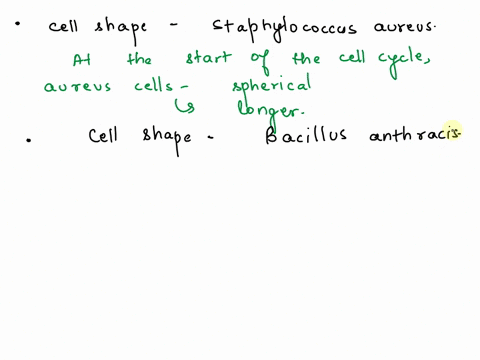 • cell shape - Staphylococcus aureus.
At the start of the cell cycle,
aureus cells - spherical
↳ longer.
• Cell shape - Bacillus anthracis.